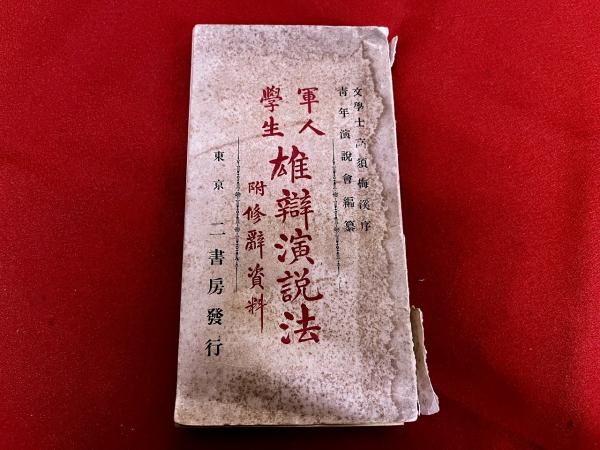 文學士高須梅溪序
青年演說會編纂
軍人
學生
雄辯演説法
附修辭資料
東京二書房發行